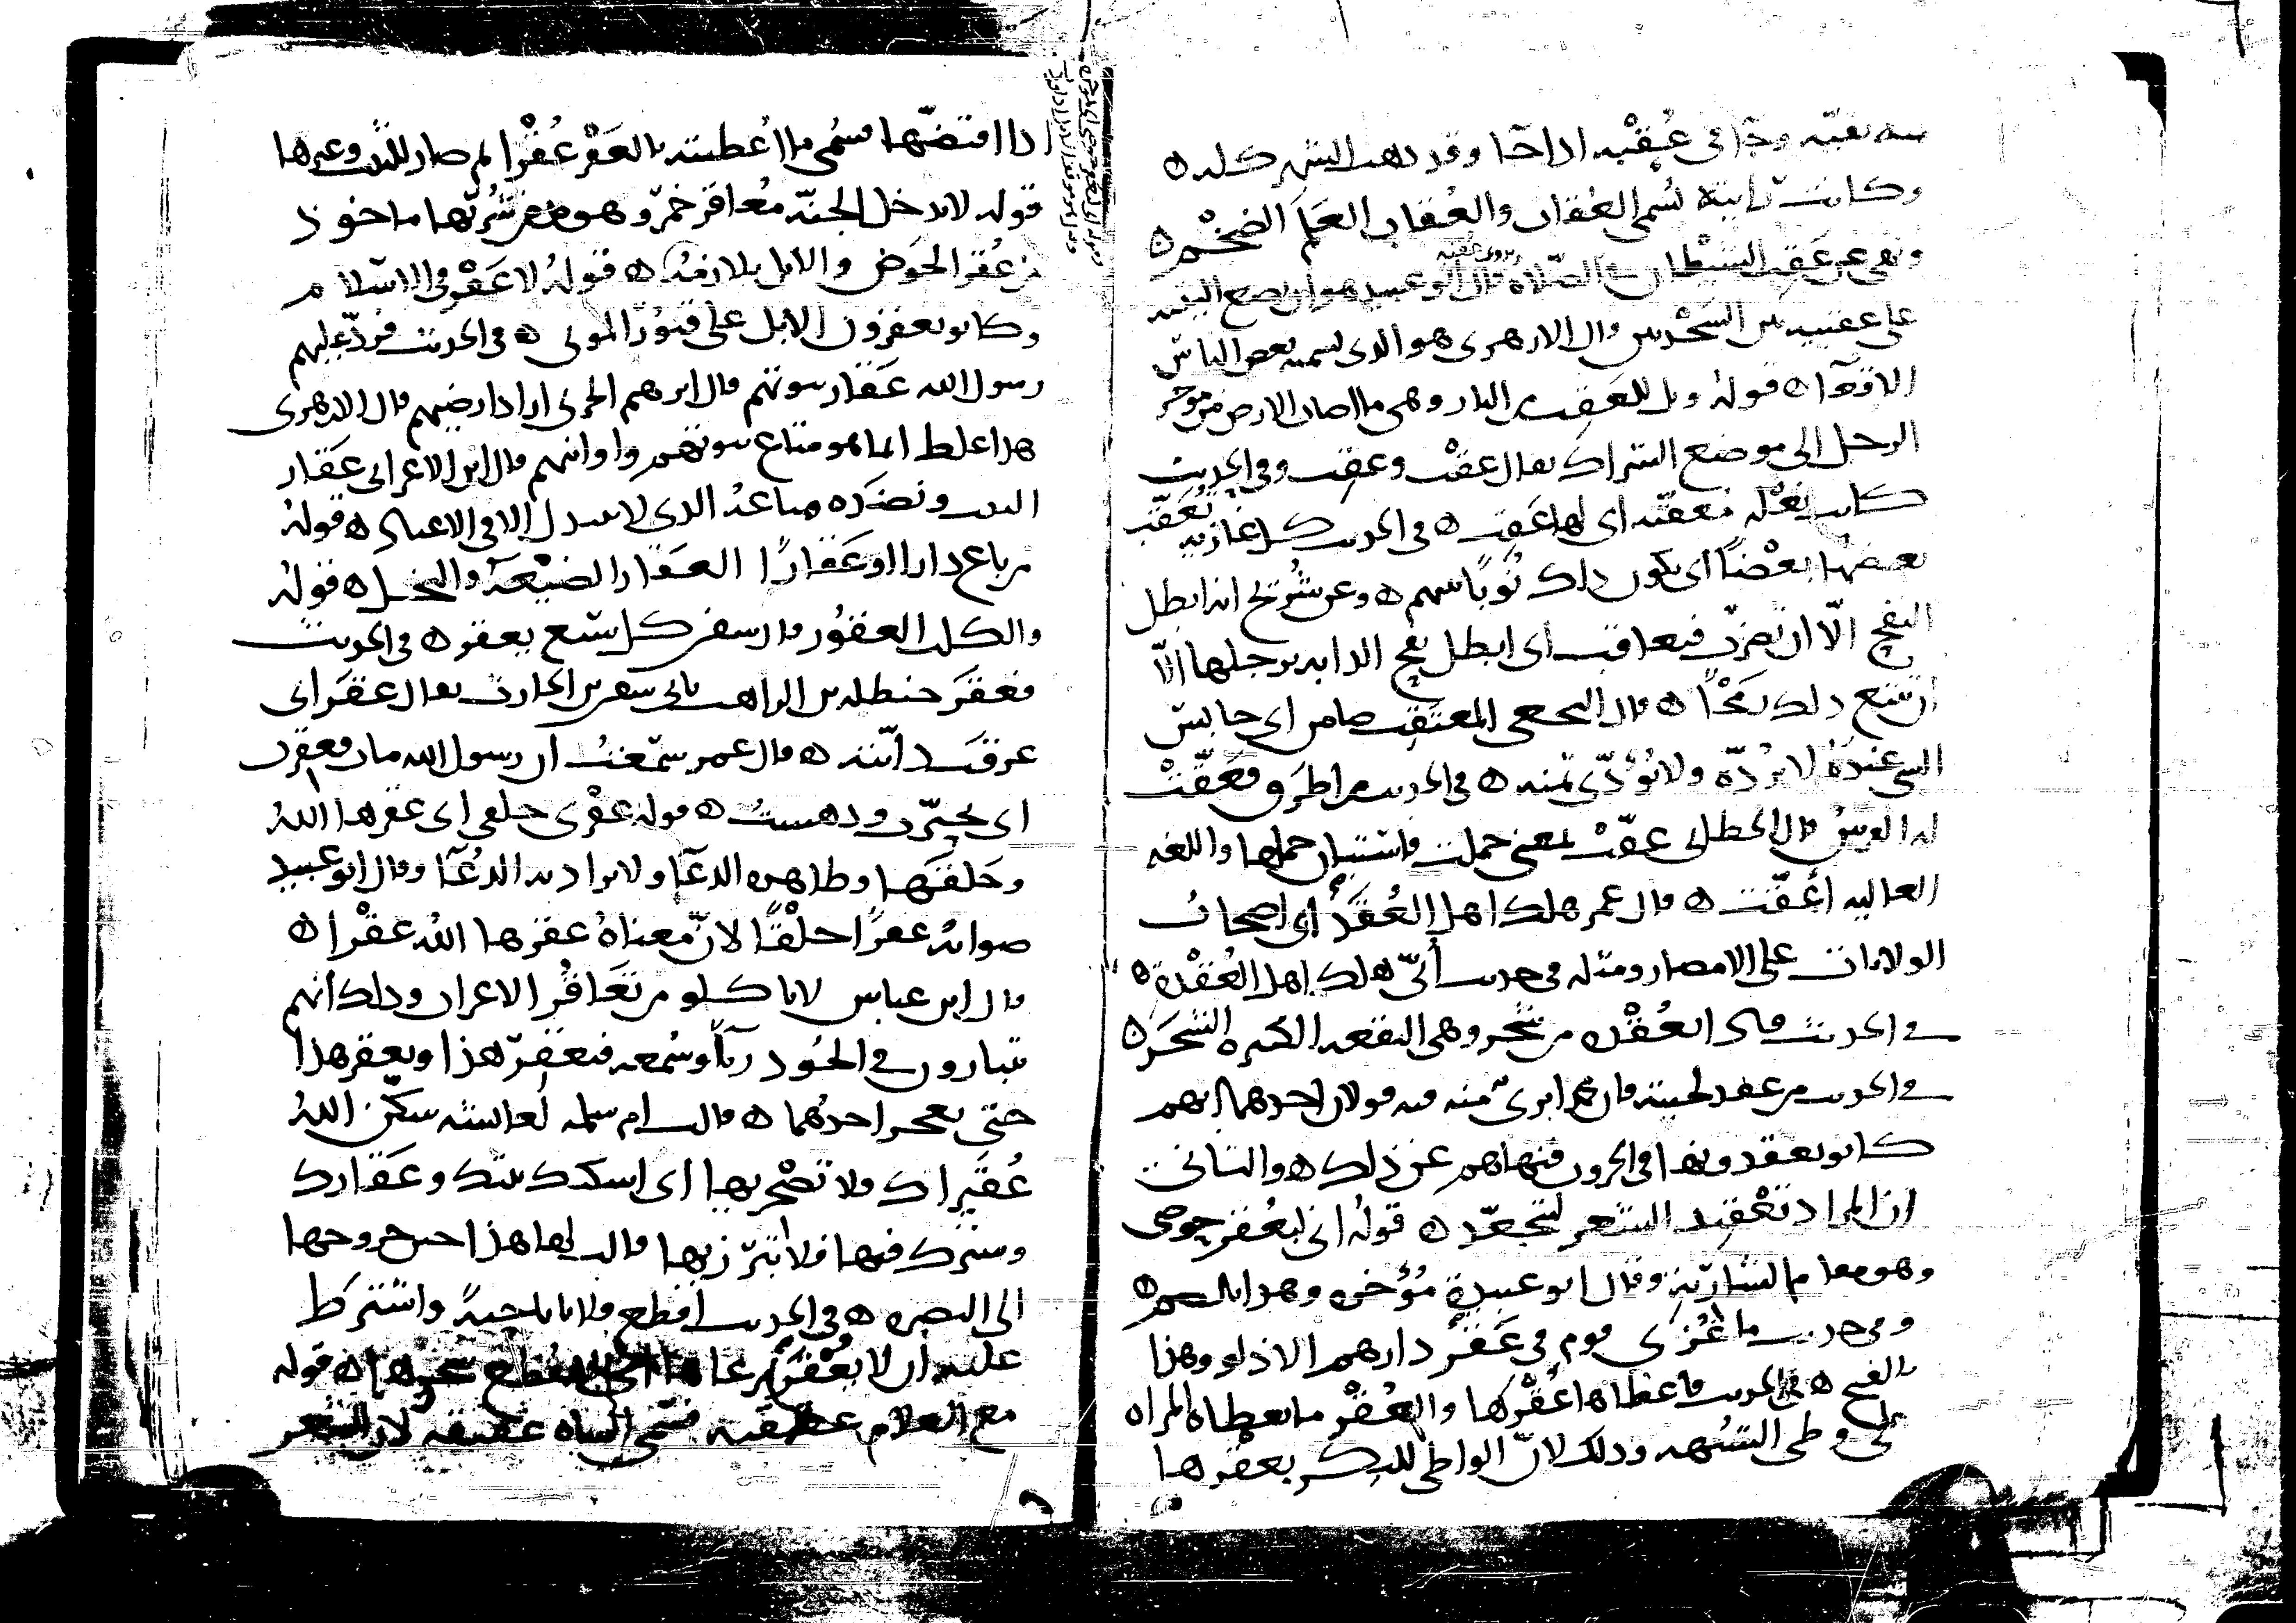 منه بقية وجآ في عُقْبه اذا جآ وقد ذهب الشهر كله ه
وكانت رايته تسمى العُقاب والعُقاب العَلَم الضخْم ه
ونهى عن عَقِب الشيْطان في الصّلاة قال أبو عبيد هو أن يضع اليتيه
على عقبيه بين السَجْدتين قال الازهري هو الذي يسميه بعض الناس
الاقعآ ه قولهُ ويل للعَقِب من النار وهي ما اصاب الارض من موخر
الرجل الى موضع الشراك يقال عقِبْ وعقب وفي الحديث
كانت نعْله معقّبه اى لها عَقِب ه في الحديث كل غازيه تُعقّب
بعضها بعْضًا اى يكون ذلك نُوبًا بينهم ه وعن شُريْح انه ابطل
النفح الّا ان تضرب فتعاقب أى ابطل نفح الدابه برجلها الّا
ان تتبع ذلك رمْحًا ه قال النخعي المعتقِب ضامن اى حابس
الشي عندهُ لا يردّه ولا يؤدّي ثمنه ه في الحديث من اطرَق فعقّتْ
له الفرسُ قال الخطابي عقّتْ بمعنى حملت فاستبان حملها واللغه
العاليه أعقّت ه قال عمر هلك اهل العُقَدِ أى اصحاب
الولايات على الامصار ومثله في حديث أُبيّ هلك اهل العُقْدة ه
في الحديث العُقْده من شجر وهي البقعه الكثيره الشجَر ه
في الحديث من عقد لحيته فان محمدا برىٌ منه فيه قولان احدهما انهم
كانوا يعقدونها في الحروب فنهاهم عن ذلك ه والثاني
ان المراد تعْقيد الشعر ليتجعّد ه قولهُ اني لبعُقر حوضي
وهو مقام الشاربة وقال ابو عبيدة مُؤخره وهو بالضم ه
وفي حديث ما غُزى قوم في عَقْر دارهم الا ذلوا وهذا
بالفتح ه في الحديث فاعطاها عُقْرها والعُقْر ما يعطاه المراه
على وطى الشبهه وذلك لانّ الواطى للبكر يعقرها
اذا افتضّها فسُمى ما اُعطيته بالعَقْر عُقْرا ثم صار للثيب وغيرها
قوله لا يدخل الجنّه مُعاقر خمرٍ وهو مدمن شُربها ماخوذ
من عُقْر الحوَض والابل يلازمهُ ه قولهُ لا عَقْر في الاسلام
وكانوا يعقرون الابل على قبوُر الموتى ه في الحديث فردّ عليهم
رسول الله عَقار بيوتهم قال ابرهيم الحربي اراد ارضيهم قال الازهري
هذا غلط انما هو متاع بيوتهم واوانيهم قال ابن الاعرابي عَقار
البيت ونضَدُه متاعهُ الذي لا يبتذل الا في الاعياد ه قولهُ
من باع دارا او عَقارًا العَقار الضيْعَهُ والنخل ه قولهُ
والكلب العقوُر قال سفين كل سبُع يعقر ه في الحديث
فعقَر حنظله بن الراهب بابي سفين بن الحارث يقال عقَر اى
عرقَب دابّته ه قال عمر سمعتُ أن رسول الله مات فعقِرت
اى تحيّرت ودهشت ه قوله عقْرى حلقى اى عقرها اللهُ
وحَلَقَها وظاهره الدعآ ولا يراد به الدُعآ وقال ابو عبيد
صوابُه عقرًا حلْقًا لانّ معناهُ عقرها اللهُ عقْرا ه
قال ابن عباس لا تاكلوا من تعَاقُر الاعراب وذلك انهم
يتبارون في الجُود ريآ وسُمعه فيعقرُ هذا ويعقر هذا
حتى يعجز احدُهما ه قالت ام سلمه لعايشه سكّن اللهُ
عُقَيْراك فلا تصْحريها اى اسكنك بيتك وعَقارك
وسترك فيها فلا تبْرزيها قالت لها هذا حين خروجها
الى البصره ه في الحديث اقطع فلانا ناحيةً واشترط
عليه ان لا يعْقر مرعاها اى لا يقطع شجرها ه قوله
مع الغلام عقيقته فسمى الشاه عقيقه لان الشعر